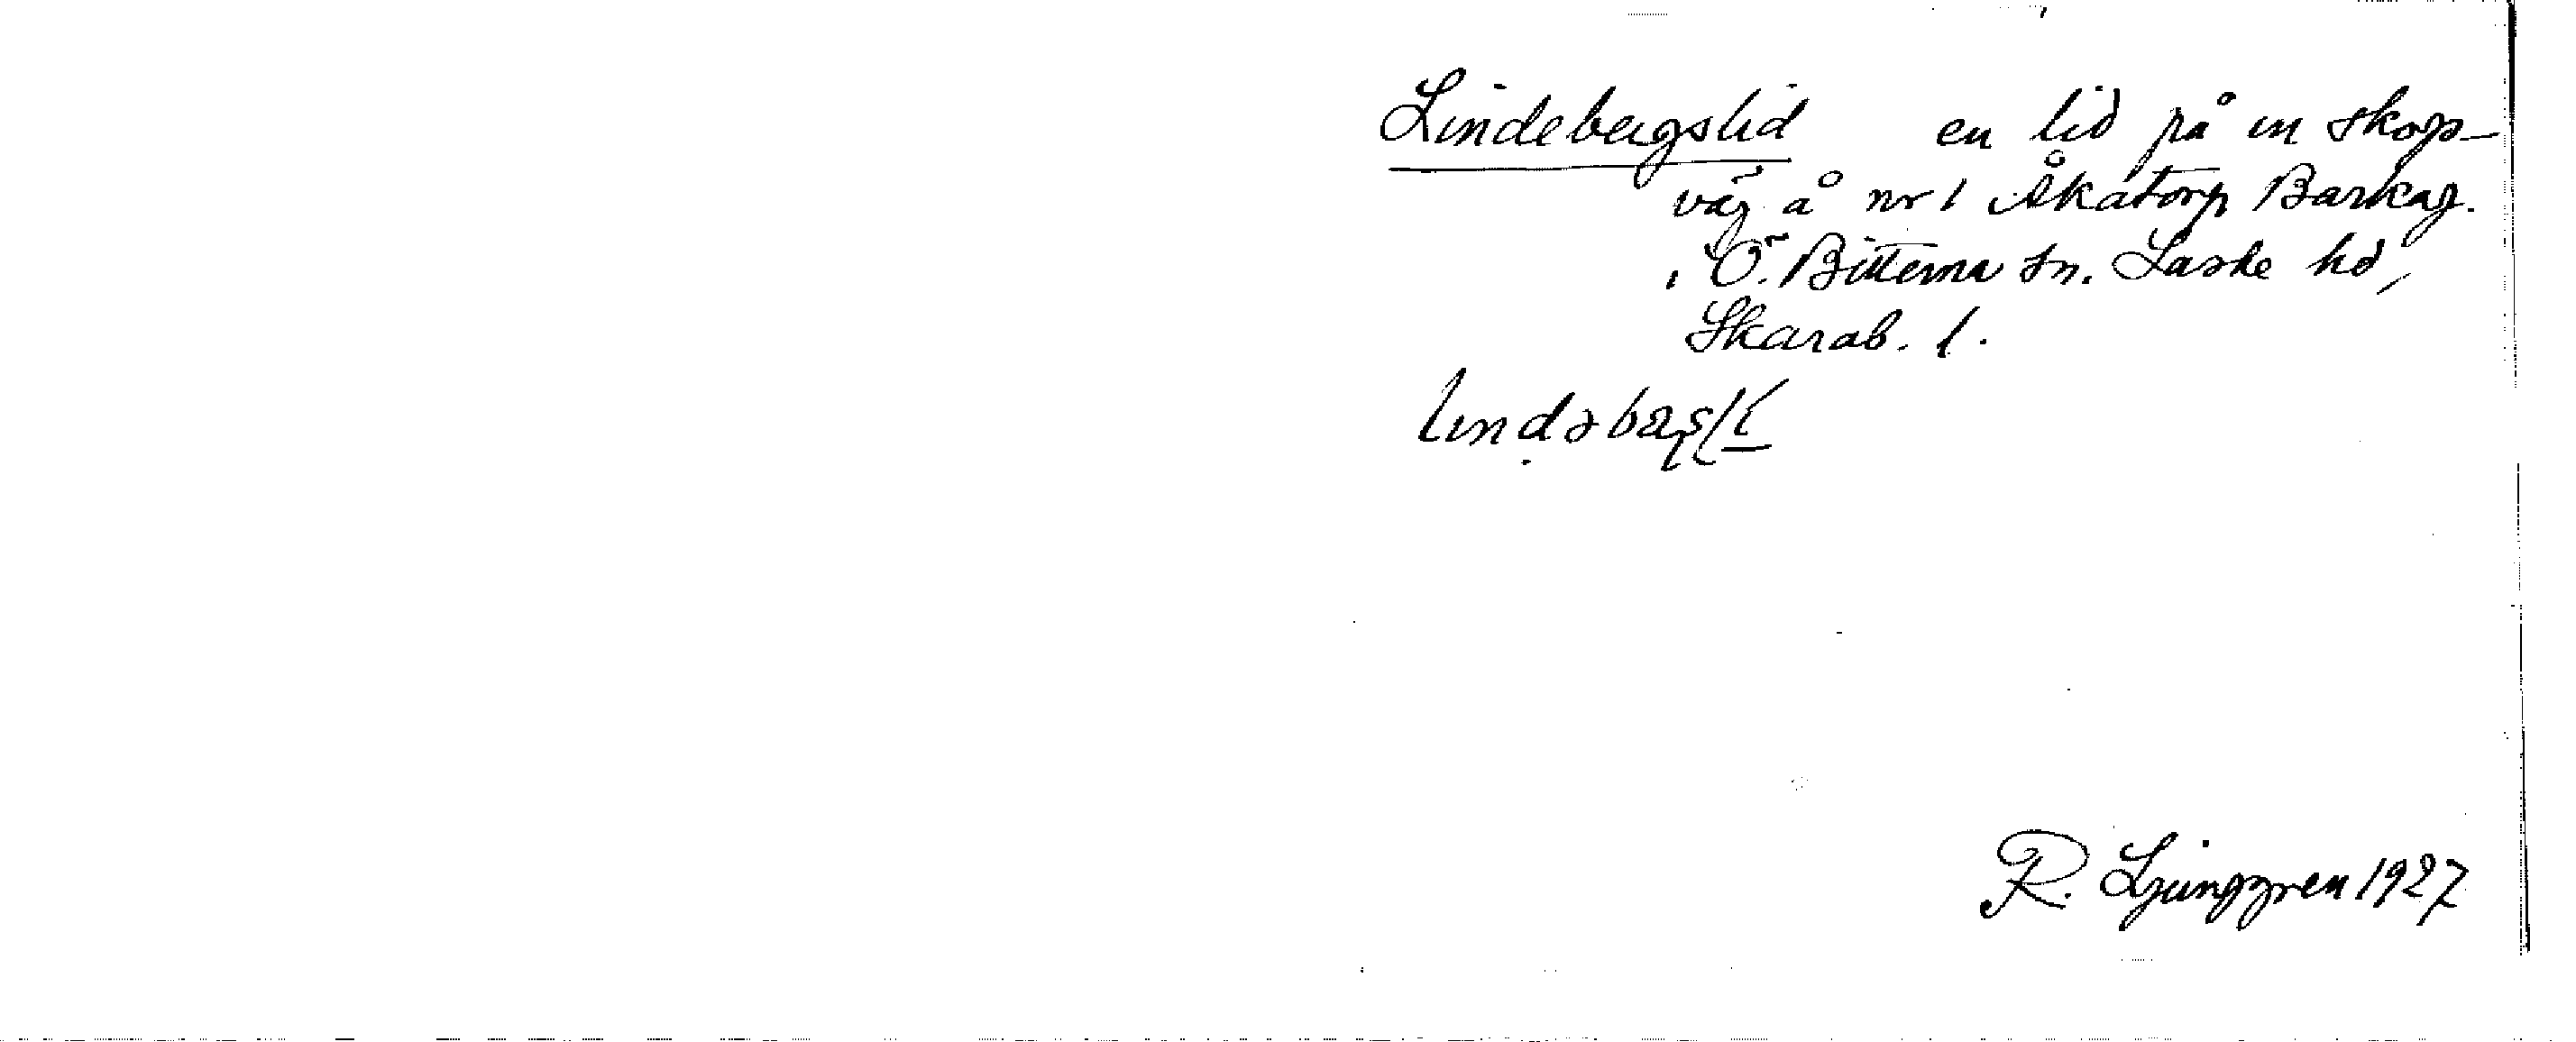 Lindebergslid en lid på en skogs-
väg å nr 1 Åkatorp Barkag.
i Ö. Bitterna sn. Laske hd,
Skarab. l.
R. Ljunggren 1927